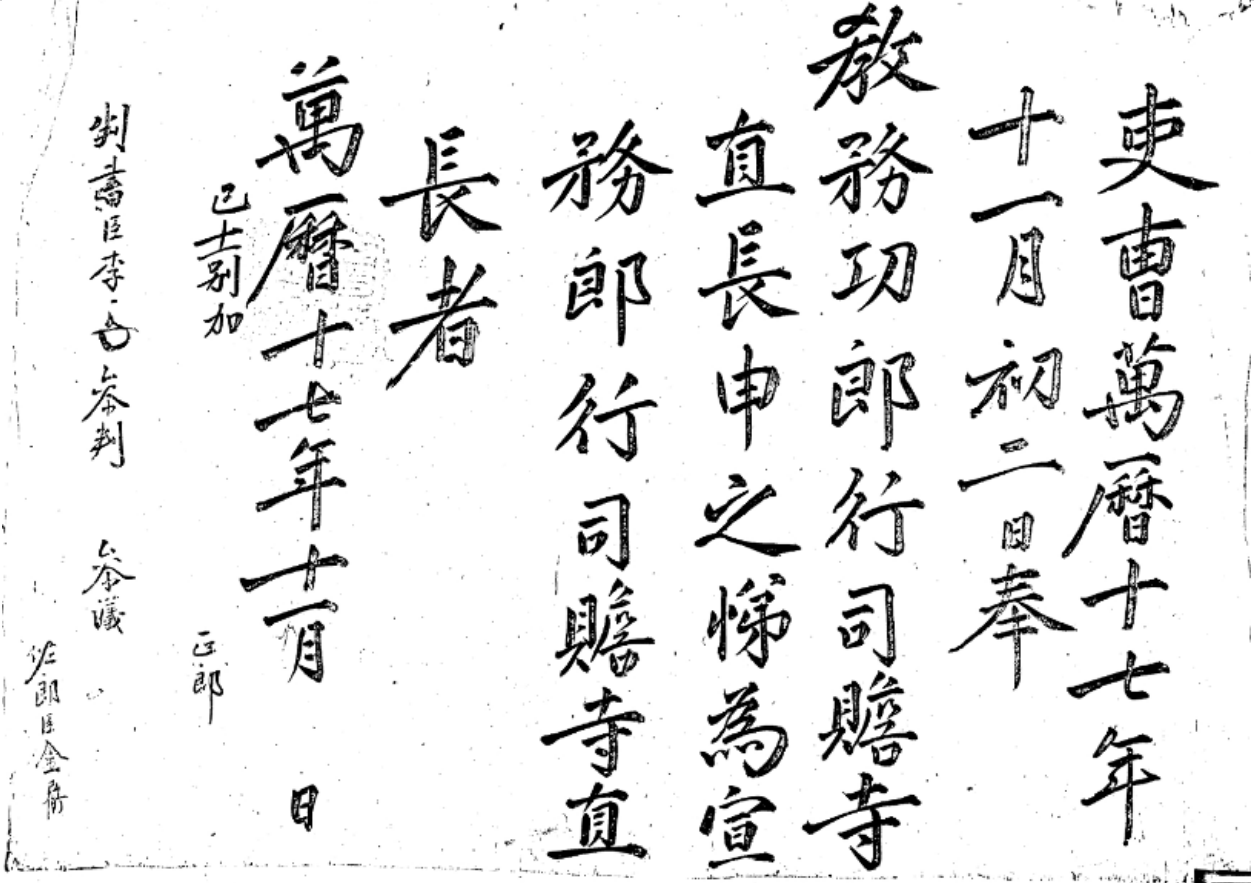 吏曺萬曆十七年
十一月初二日奉
敎務功郎行司贍寺
直長申之悌為宣
務郎行司贍寺直
長者
萬曆十七年十一月 日
己士別加
正郎
判書臣李 参判 参議
佐郎臣金